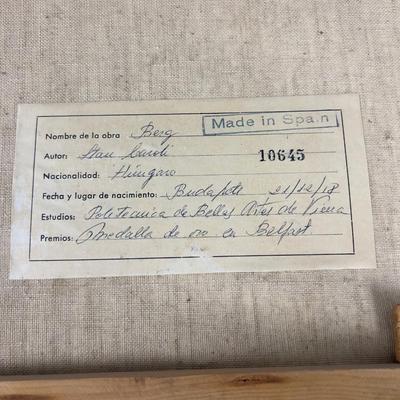 Made in Spain
Nombre de la obra Berg
Autor: Stan Caroli
10645
Nacionalidad: Húngaro
Fecha y lugar de nacimiento: Budapest 21/12/18
Estudios: Politecnica de Bellas Artes de Viena
Premios: 1 medalla de oro en Belfast